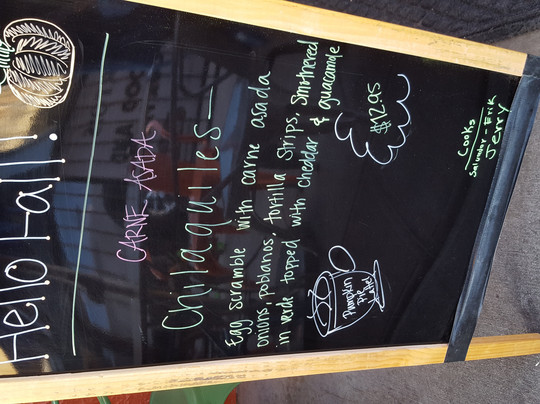 Hello Fall!
CARNE ASADA
Chilaquiles—
Egg scramble with carne asada
onions, poblanos, tortilla strips, smothered
in verde topped with cheddar & guacamole
$12.95
Pumpkin
Pie
Latte!
Cooks
Salvador - Erik
Jerry